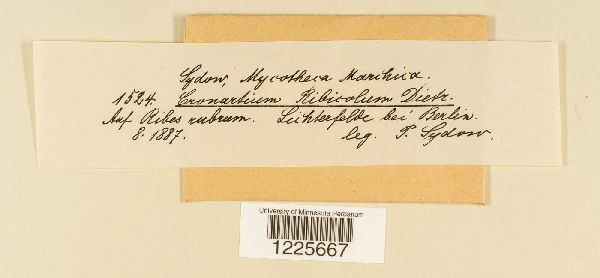 Sydow, Mycotheca Marchica.
1524. Cronartium Ribicolum Dietr.
Auf Ribes rubrum. Lichterfelde bei Berlin.
8. 1887. leg. P. Sydow.
University of Minnesota Herbarium
1225667